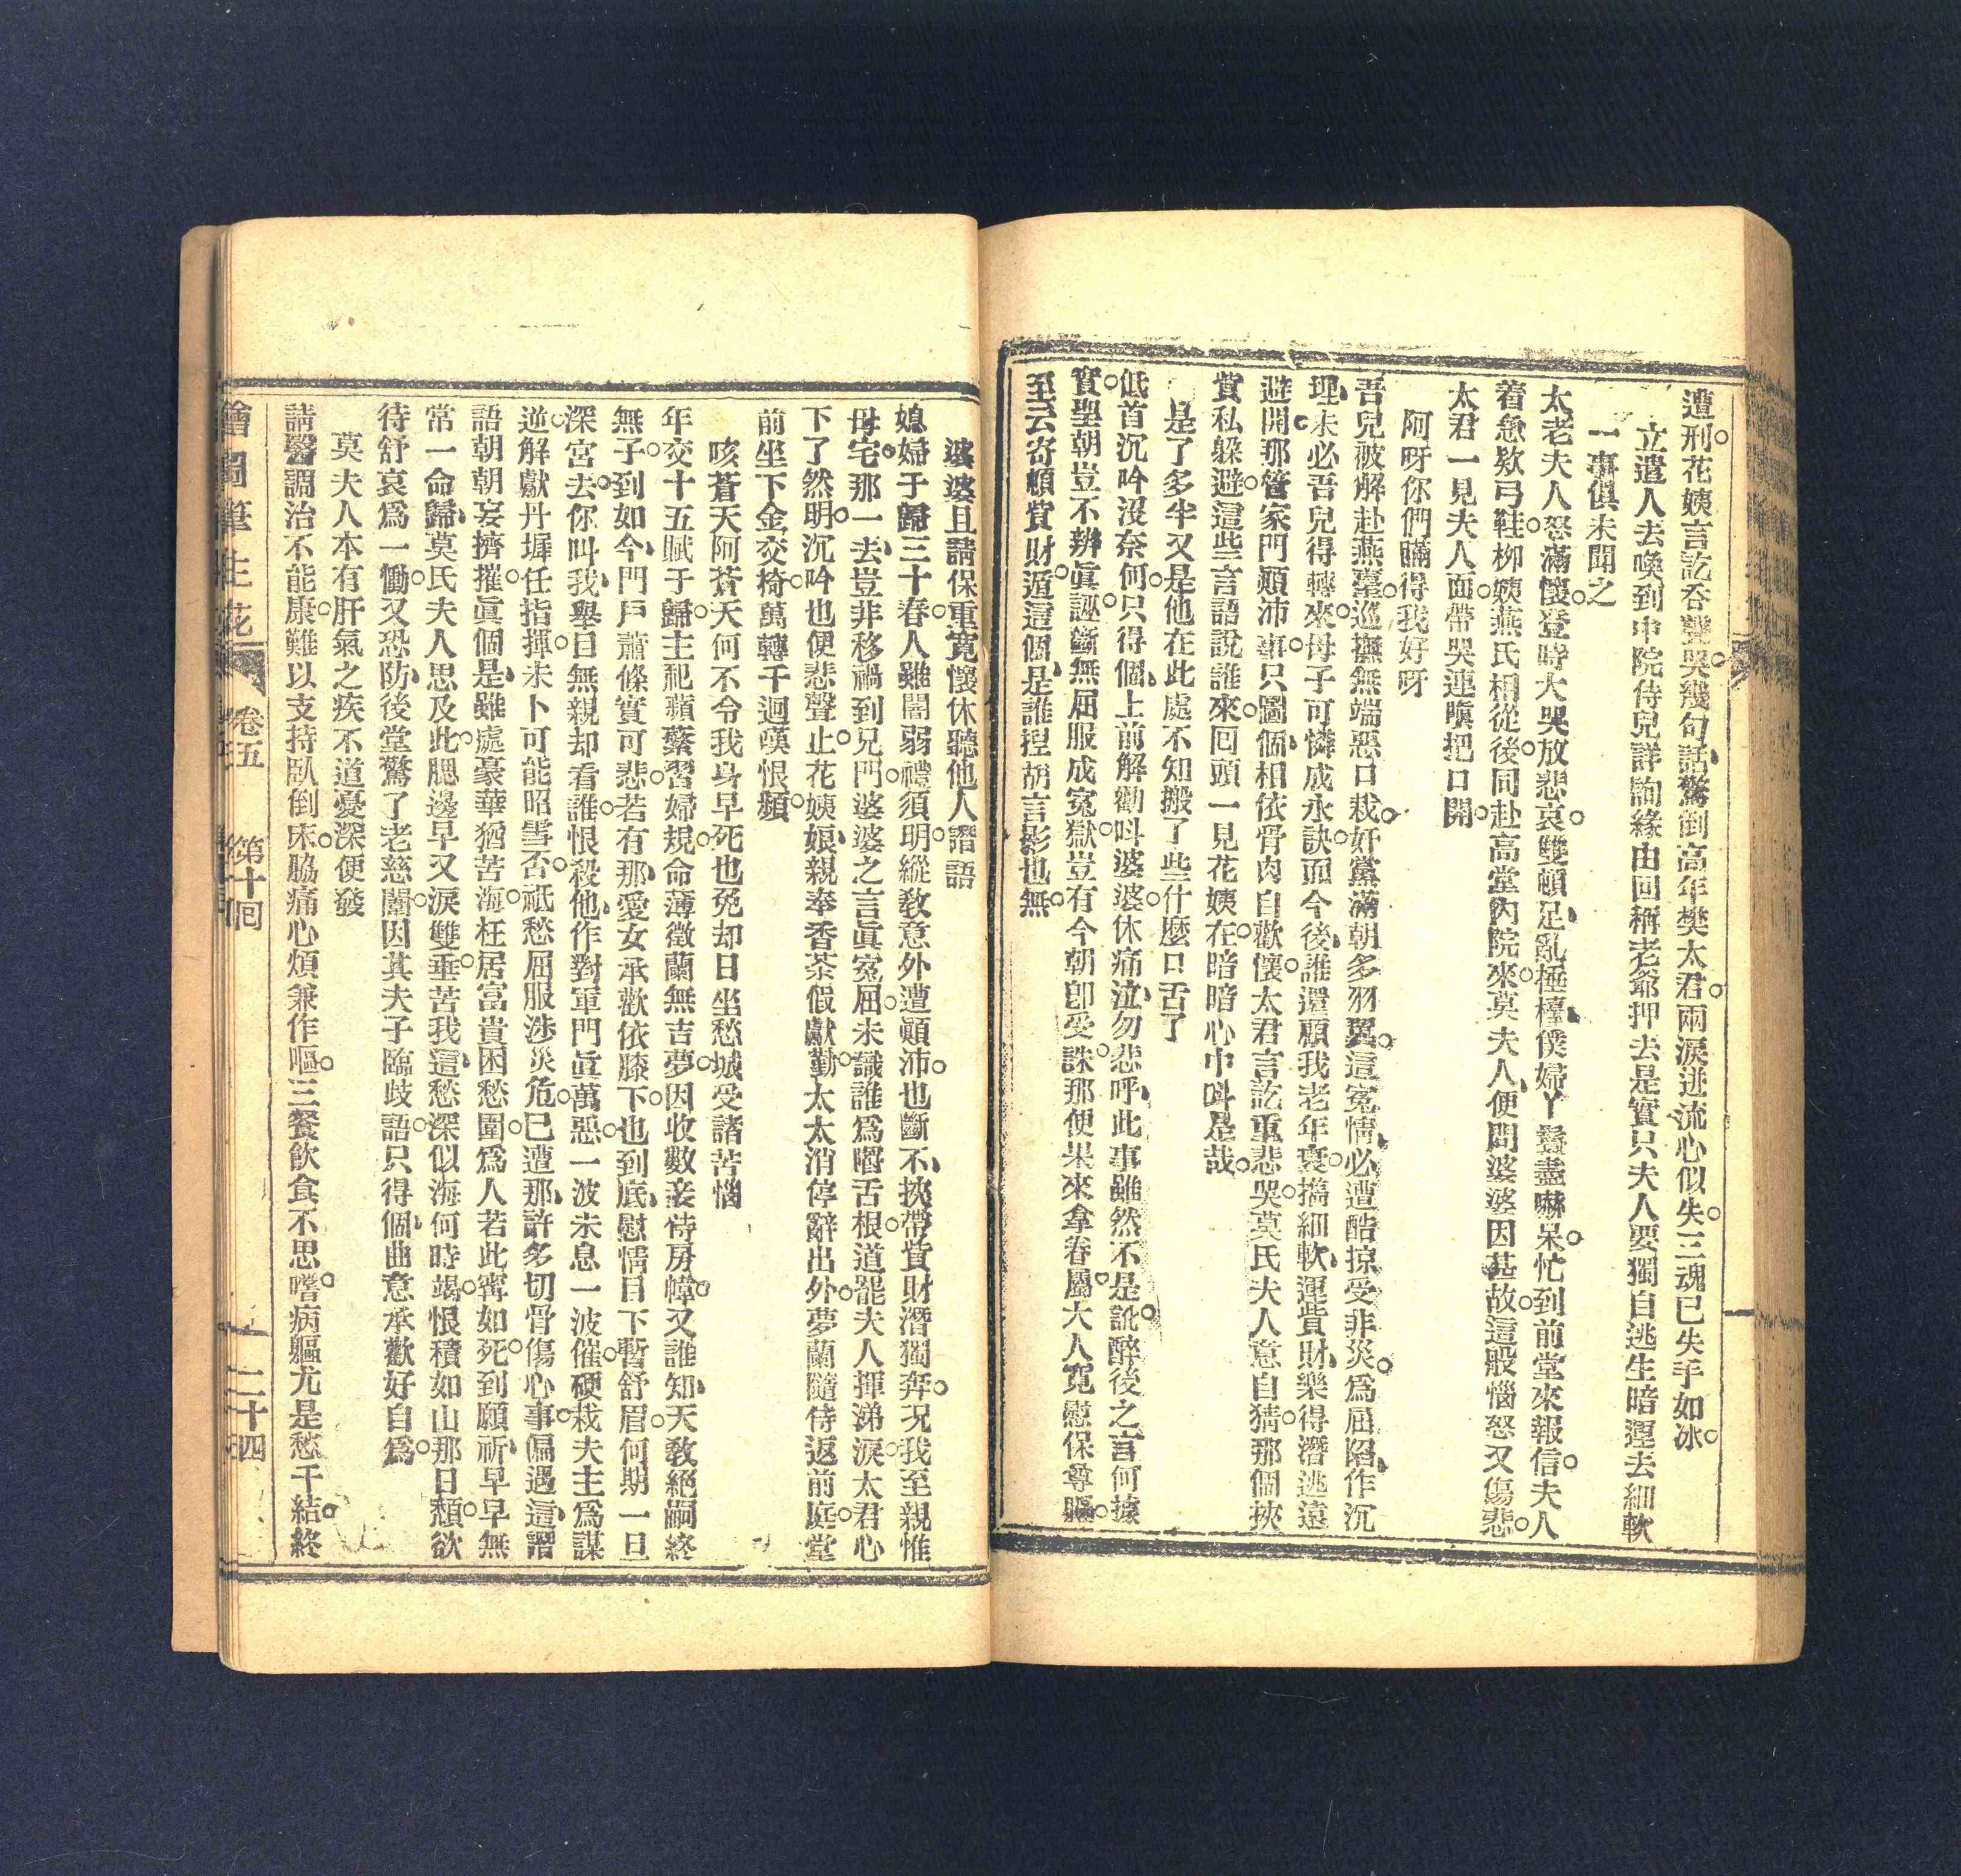 遭刑。花姨言訖吞聲哭。幾句話、驚倒高年樊太君。兩淚迸流心似失。三魂已失手如冰。
立遣人去喚到中院侍兒詳詢緣由回稱老爺押去是實只夫人要獨自逃生暗運去細軟
一事俱未聞之
太老夫人怒滿懷。登時大哭放悲哀。雙頓足、亂捶檯、僕婦丫鬟盡嚇呆。忙到前堂來報信。夫人
着急欵弓鞋。柳姨燕氏相從後。同赴高堂內院來。莫夫人、便問婆婆因甚故。這般惱怒又傷悲。
太君一見夫人面。帶哭連嗔把口開。
阿呀你們瞞得我好呀
吾兒被解赴燕臺。巡撫無端惡口栽。奸黨滿朝多羽翼。這冤情、必遭酷掠受非災。爲屈陷、作沉
埋、未必吾兒得轉來。母子可憐成永訣。而今後、誰還顧我老年衰。搗細軟、運貲財、樂得潛逃遠
避開。那管家門顛沛事。只圖個、相依骨肉自歡懷。太君言訖重悲哭。莫氏夫人意自猜。那個挾
貲私躱避。這些言語說誰來。囘頭一見花姨在。暗暗心中呌是哉。
是了多半又是他在此處不知搬了些什麽口舌了
低首沉吟沒奈何。只得個、上前解勸呌婆婆。休痛泣、勿悲呼、此事雖然不是訛。醉後之言何據
實。聖朝豈不辨眞誣。斷無屈服成冤獄。豈有今朝卽受誅。那便果來拿眷屬。大人寬慰保尊軀。
至云寄頓貲財道。這個是、誰捏胡言影也無。
婆婆且請保重寬懷休聽他人譖語
媳婦于歸三十春。人雖闇弱禮須明。縱敎意外遭顛沛。也斷不、挾帶貲財潛獨奔。况我至親惟
母宅。那一去、豈非移禍到兄門。婆婆之言眞冤屈。未識誰爲嚼舌根。道罷夫人揮涕淚。太君心
下了然明。沉吟也便悲聲止。花姨娘、親奉香茶假獻勤。太太消停辭出外。夢蘭隨侍返前庭。堂
前坐下金交椅。萬轉千迴嘆恨頻。
咳蒼天阿蒼天何不令我身早死也免却日坐愁城受諸苦惱
年交十五賦于歸。主祀蘋蘩習婦規。命薄徵蘭無吉夢。因收數妾侍房幃。又誰知、天敎絕嗣終
無子。到如今、門戶蕭條實可悲。若有那、愛女承歡依膝下。也到底、慰情目下暫舒眉。何期一旦
深宮去。你呌我、舉目無親却看誰。恨殺他、作對軍門眞萬惡。一波未息一波催。硬栽夫主爲謀
逆。解獻丹墀任指揮。未卜可能昭雪否。祇愁屈服涉災危。已遭那、許多切骨傷心事。偏遇這、譖
語朝朝妄擠摧。眞個是、雖處豪華猶苦海。枉居富貴困愁圍。爲人若此甯如死。到願祈、早早無
常一命歸。莫氏夫人思及此。腮邊早又淚雙垂。苦我這、愁深似海何時竭。恨積如山那日頹。欲
待舒哀爲一慟。又恐防、後堂驚了老慈闈。因其夫子臨歧語。只得個、曲意承歡好自爲。
莫夫人本有肝氣之疾不道憂深便發
請醫調治不能康。難以支持臥倒床。脇痛心煩兼作嘔。三餐飲食不思嚐。病軀尤是愁千結。終
繪圖筆生花 卷五 第十囘 二十四